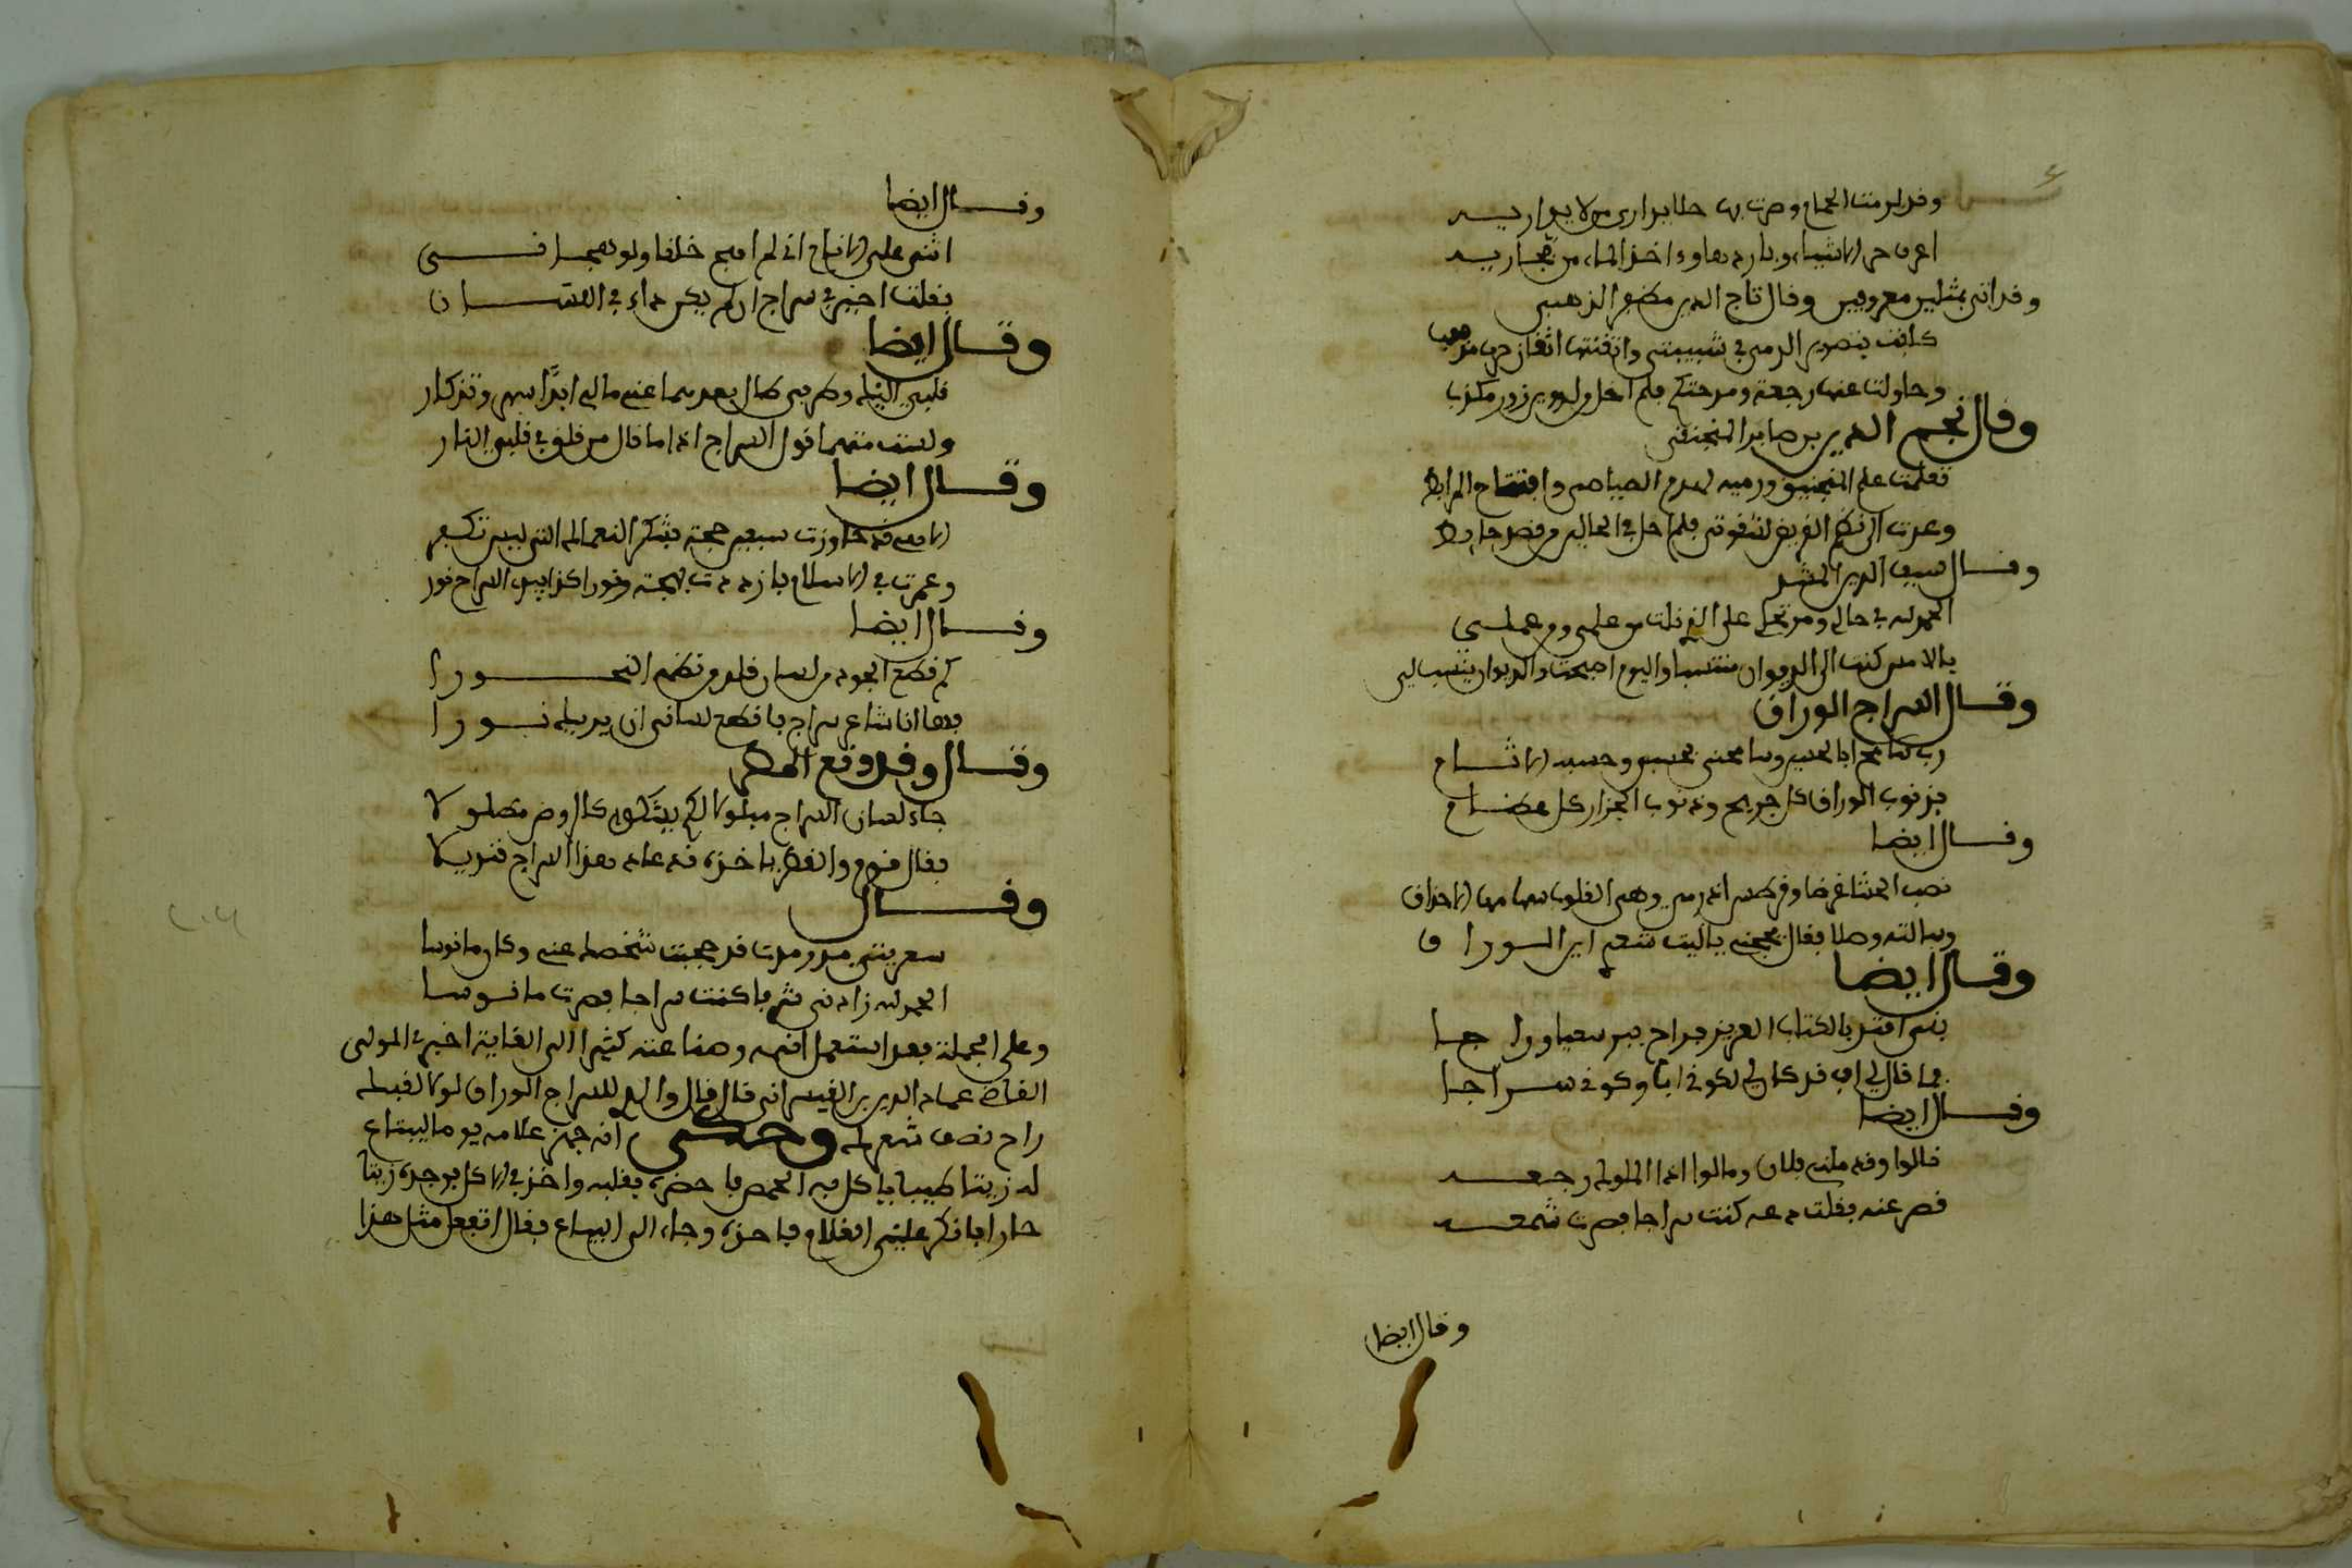 وقد لزمت الحمام وصرت بها خلا يداري من لا يداريه
اعرف حر الاشياء وباردها واخذ الماء من مجاريه
وقد اتى بمثلين معروفين وقال تاج الدين مظفر الذهبي
كلفت بتصوير الدمى في شبيبتي واتقنتها اتقان حبر مهذب
وحاولت عنها رجعة ومدحتكم فلم اخل من تزوير زور مكذب
وقال نجم الدين بن صابر المنجنيقي
تعلمت علم المنجنيق ورميه لهدم الصياصي وافتتاح المرابط
وعدت الى نظم القريض لشقوتي فلم اخل في الحالين من قصد حايط
وقال سيف الدين المشد
الحمد لله في حالي ومرتحلي على الذي نلت من علمي ومن عملي
بالامس كنت الى الديوان منتسبا واليوم اصبحت والديوان ينسب لي
وقال السراج الوراق
رب سامح ابا الحسين وسامحني فحسبي وحسبه الاثام
فذنوب الوراق كل جريح وذنوب الجزار كل عظام
وقال ايضا
نصب الحشا غرضا وقرطس اذ رمى وهي القلوب سهامها الاحداق
وسالته وصلا فقال يحجني يا ليت شعري اين الوراق
وقال ايضا
بني اقتدى بالكتاب العزيز فراح لبري سعيا وراجا
فما قال لي اف قد كان لي لكوني ابا وكوني سراجا
وقال ايضا
قالوا وقد ملني فلان وما لوا اذا الملول رجعه
قصر عنه فقلت دعه كنت سراجا فصرت شمعه
وقال ايضا
وقال ايضا
اثنى علي الانام اني لم اهج خلقا ولو هجاني
فقلت لا خير في سراج ان لم يكن دافي اللسان
وقال ايضا
قلبي اليك وطرفي طال بعدهما عني مالي ابدا انس وتذكار
ولست متهما قول السراج اذا ما قال من قلق في قلبي النار
وقال ايضا
الاهي قد جاوزت سبعين حجة فشكرا لنعمالك التي ليس تكفر
وعمرت في الاسلام فازددت بهجة ونورا كذا يبدو السراج المنور
وقال ايضا
كم قطع الجود من لسان قلد من نظمه النحورا
فها انا شاعر سراج فاقطع لساني ازيدك نورا
وقال وقد وقع المطر
جاء لسان السراج مبلولا لكم يشكره كالروض مطلولا
فقال قوم والقطر ياخذه قد عاد هذا السراج قنديلا
وقال
سعدينتي مذ ومدت قد حجبت شخصك عني وكان مانوسا
الحمد لله زادني شرفا كنت سراجا فصرت فانوسا
وعلى الجملة فقد استعمل لقبه وصناعته كثيرا الى الغاية اخبرني المولى
القاضي عماد الدين بن القيسراني قال قال والدي للسراج الوراق لولا لقبك
راح نصف شعرك وحكي انه جهز غلامه يوما ليبتاع
له زيتا طيبا ياكل به الحمص فاحضره فقلبه واخذ في الاكل فوجده زيتا
حارا فانكر على الغلام فاخذه وجاء الى البياع فقال اتفعل مثل هذا